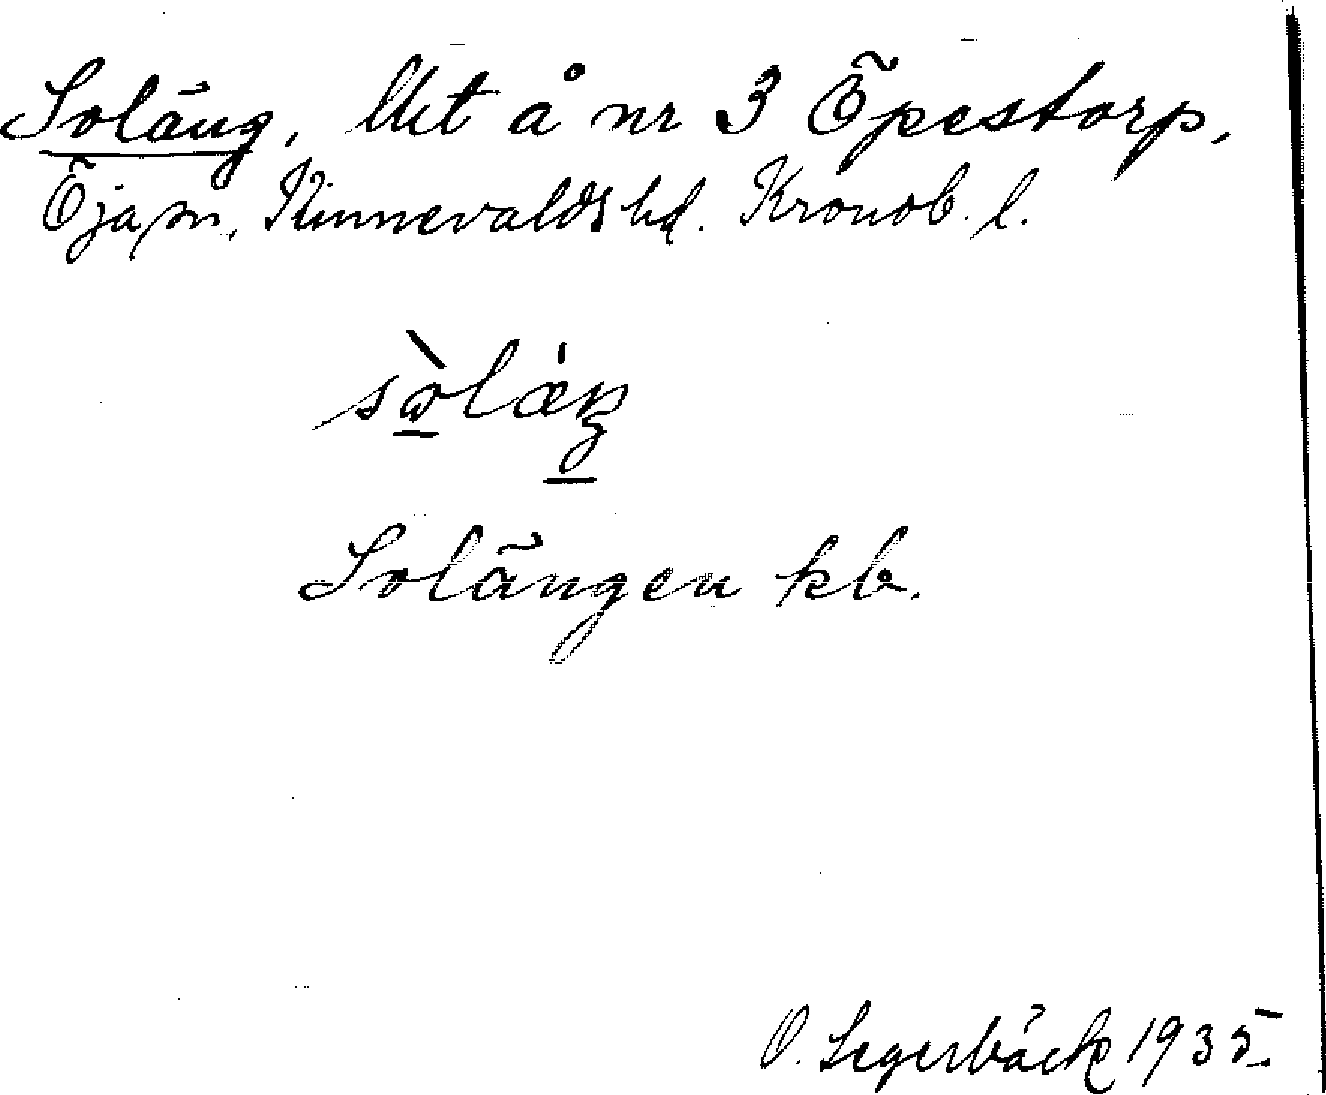 Soläng, lht å nr 3 Öpestorp,
Öja sn, Kinnevalds hd. Kronob. l.
sòlæŋ
Solängen kb.
O. Segerbäck 1935.